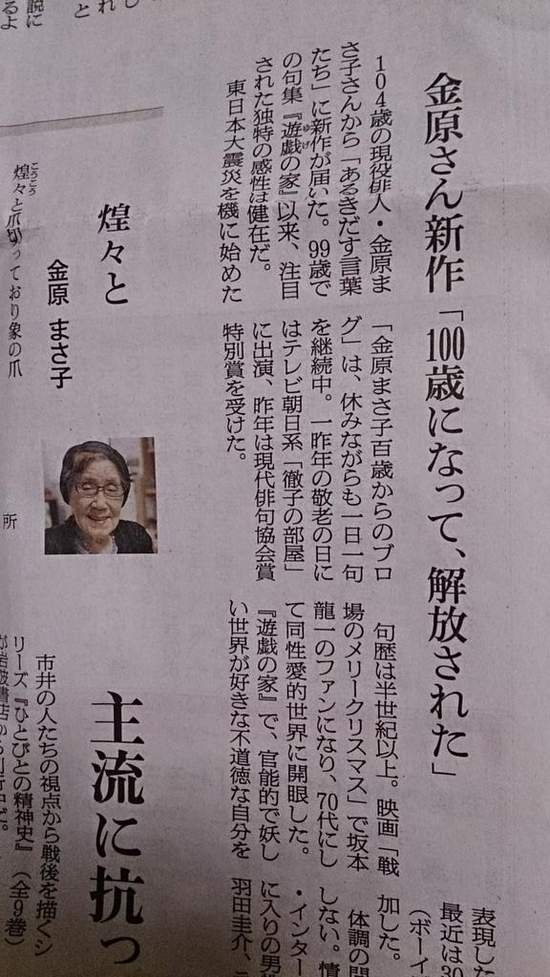 金原さん新作「100歳になって、解放された」
104歳の現役俳人・金原ま
さ子さんから「あるきだす言葉
たち」に新作が届いた。99歳で
の句集『遊戯の家』以来、注目
ゆげ
された独特の感性は健在だ。
東日本大震災を機に始めた
「金原まさ子百歳からのブロ
グ」は、休みながらも一日一句
を継続中。一昨年の敬老の日に
はテレビ朝日系「徹子の部屋」
に出演、昨年は現代俳句協会賞
特別賞を受けた。
句歴は半世紀以上。映画「戦
場のメリークリスマス」で坂本
龍一のファンになり、70代にし
て同性愛的世界に開眼した。
『遊戯の家』で、官能的で妖し
い世界が好きな不道徳な自分を
表現した
最近は30
（ボーイ
加した。
体調の問
しない。情
・インター
に入りの男
羽田圭介、
煌々と
金原 まさ子
こうこう
煌々と爪切っており象の爪
所
主流に抗っ
市井の人たちの視点から戦後を描くシ
リーズ『ひとびとの精神史』（全9巻）
が岩波書店から刊行中だ。